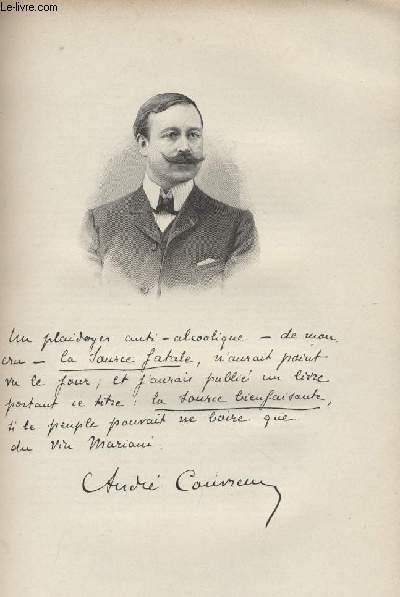 Le-livre.com
Un plaidoyer anti-alcoolique - de mon
cru - la Source fatale, n'aurait point
vu le jour; et j'aurais publié un livre
portant ce titre: la Source bienfaisante,
si le peuple pouvait ne boire que
du Vin Mariani.
André Couvreur